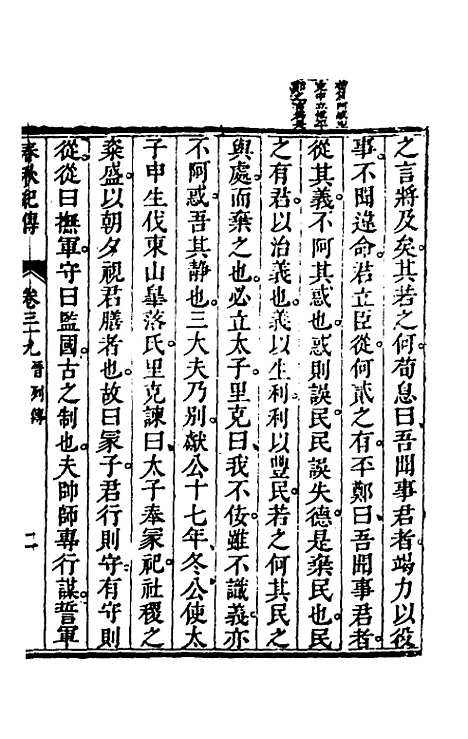 之言將及矣其若之何荀息曰吾聞事君者竭力以役
事不聞違命君立臣從何貳之有丕鄭曰吾聞事君者
從其義不阿其惑也惑則誤民民誤失德是棄民也民
之有君以治義也義以生利利以豐民若之何其民之
與處而棄之也必立太子里克曰我不佞雖不識義亦
不阿惑吾其静也三大夫乃别獻公十七年冬公使太
子申生伐東山臯落氏里克諫曰太子奉冢祀社稷之
粢盛以朝夕視君膳者也故曰冢子君行則守有守則
從從曰撫軍守曰監國古之制也夫帥師專行謀誓軍
春秋紀傳
卷三十九
晉列傳
二